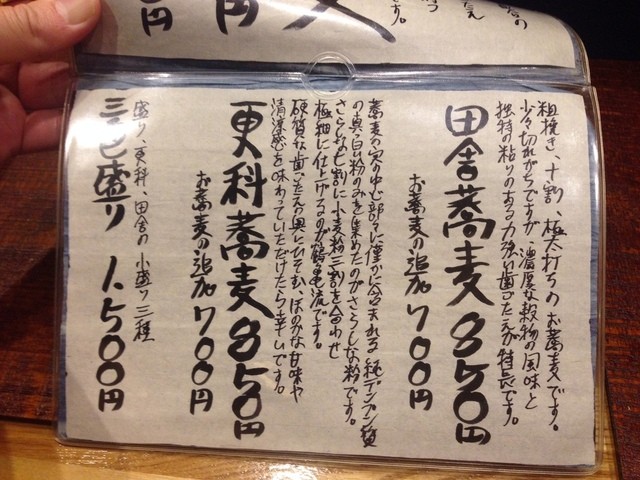 粗挽き、十割、極太打ちのお蕎麦です。
少々切れがちですが、濃厚な穀物の風味と
独特の粘りのある力強い歯ごたえが特長です。
田舎蕎麦 850円
お蕎麦の追加 700円
蕎麦の実の中心部分に僅かに含まれる純デンプン質
の真っ白い粉のみを集めたのがさらしな粉です。
さらしな七割に小麦粉三割を合わせ
極細に仕上げるのが鶴亀流です。
硬質な歯ごたえの奥にひそむ、ほのかな甘味や
清涼感を味わっていただけたら幸いです。
更科蕎麦 850円
お蕎麦の追加 700円
盛り、更科、田舎の小盛り三種
三色盛り 1,500円